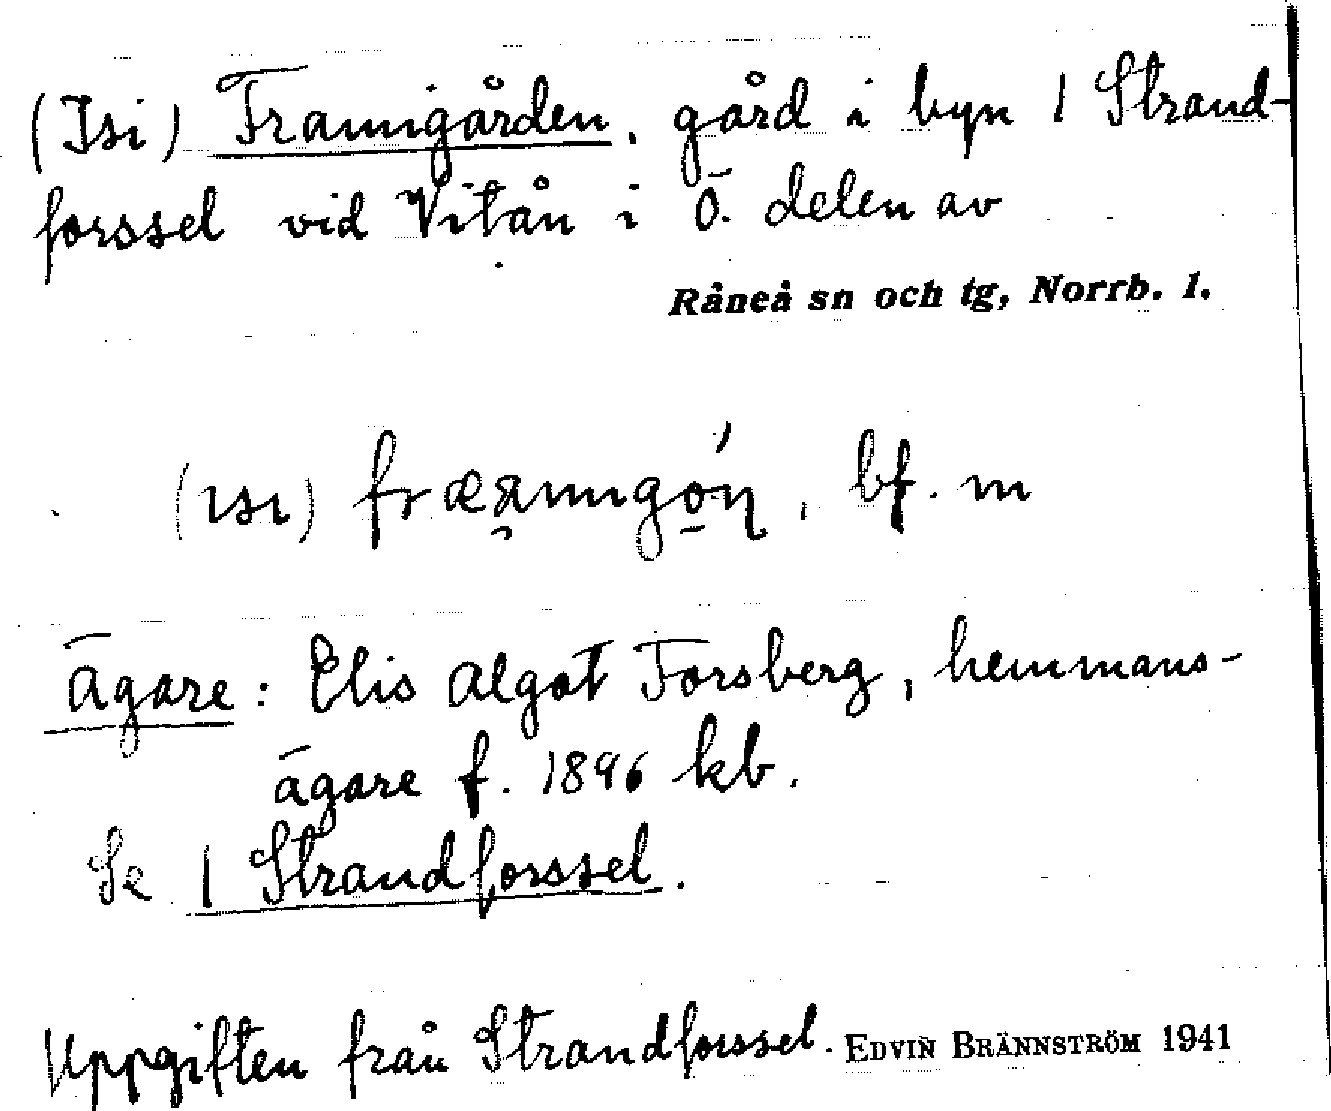 (Isi) Framigården, gård i byn 1 Strand-
forssel vid Vitån i ö. delen av
Råneå sn och tg, Norrb. l.
(ısı) , bf. m
ägare: Elis Algot Forsberg, hemmans-
ägare f. 1896 kb.
Se 1 Strandforssel.
Uppgiften från Strandforssel. EDVIN BRÄNNSTRÖM 1941